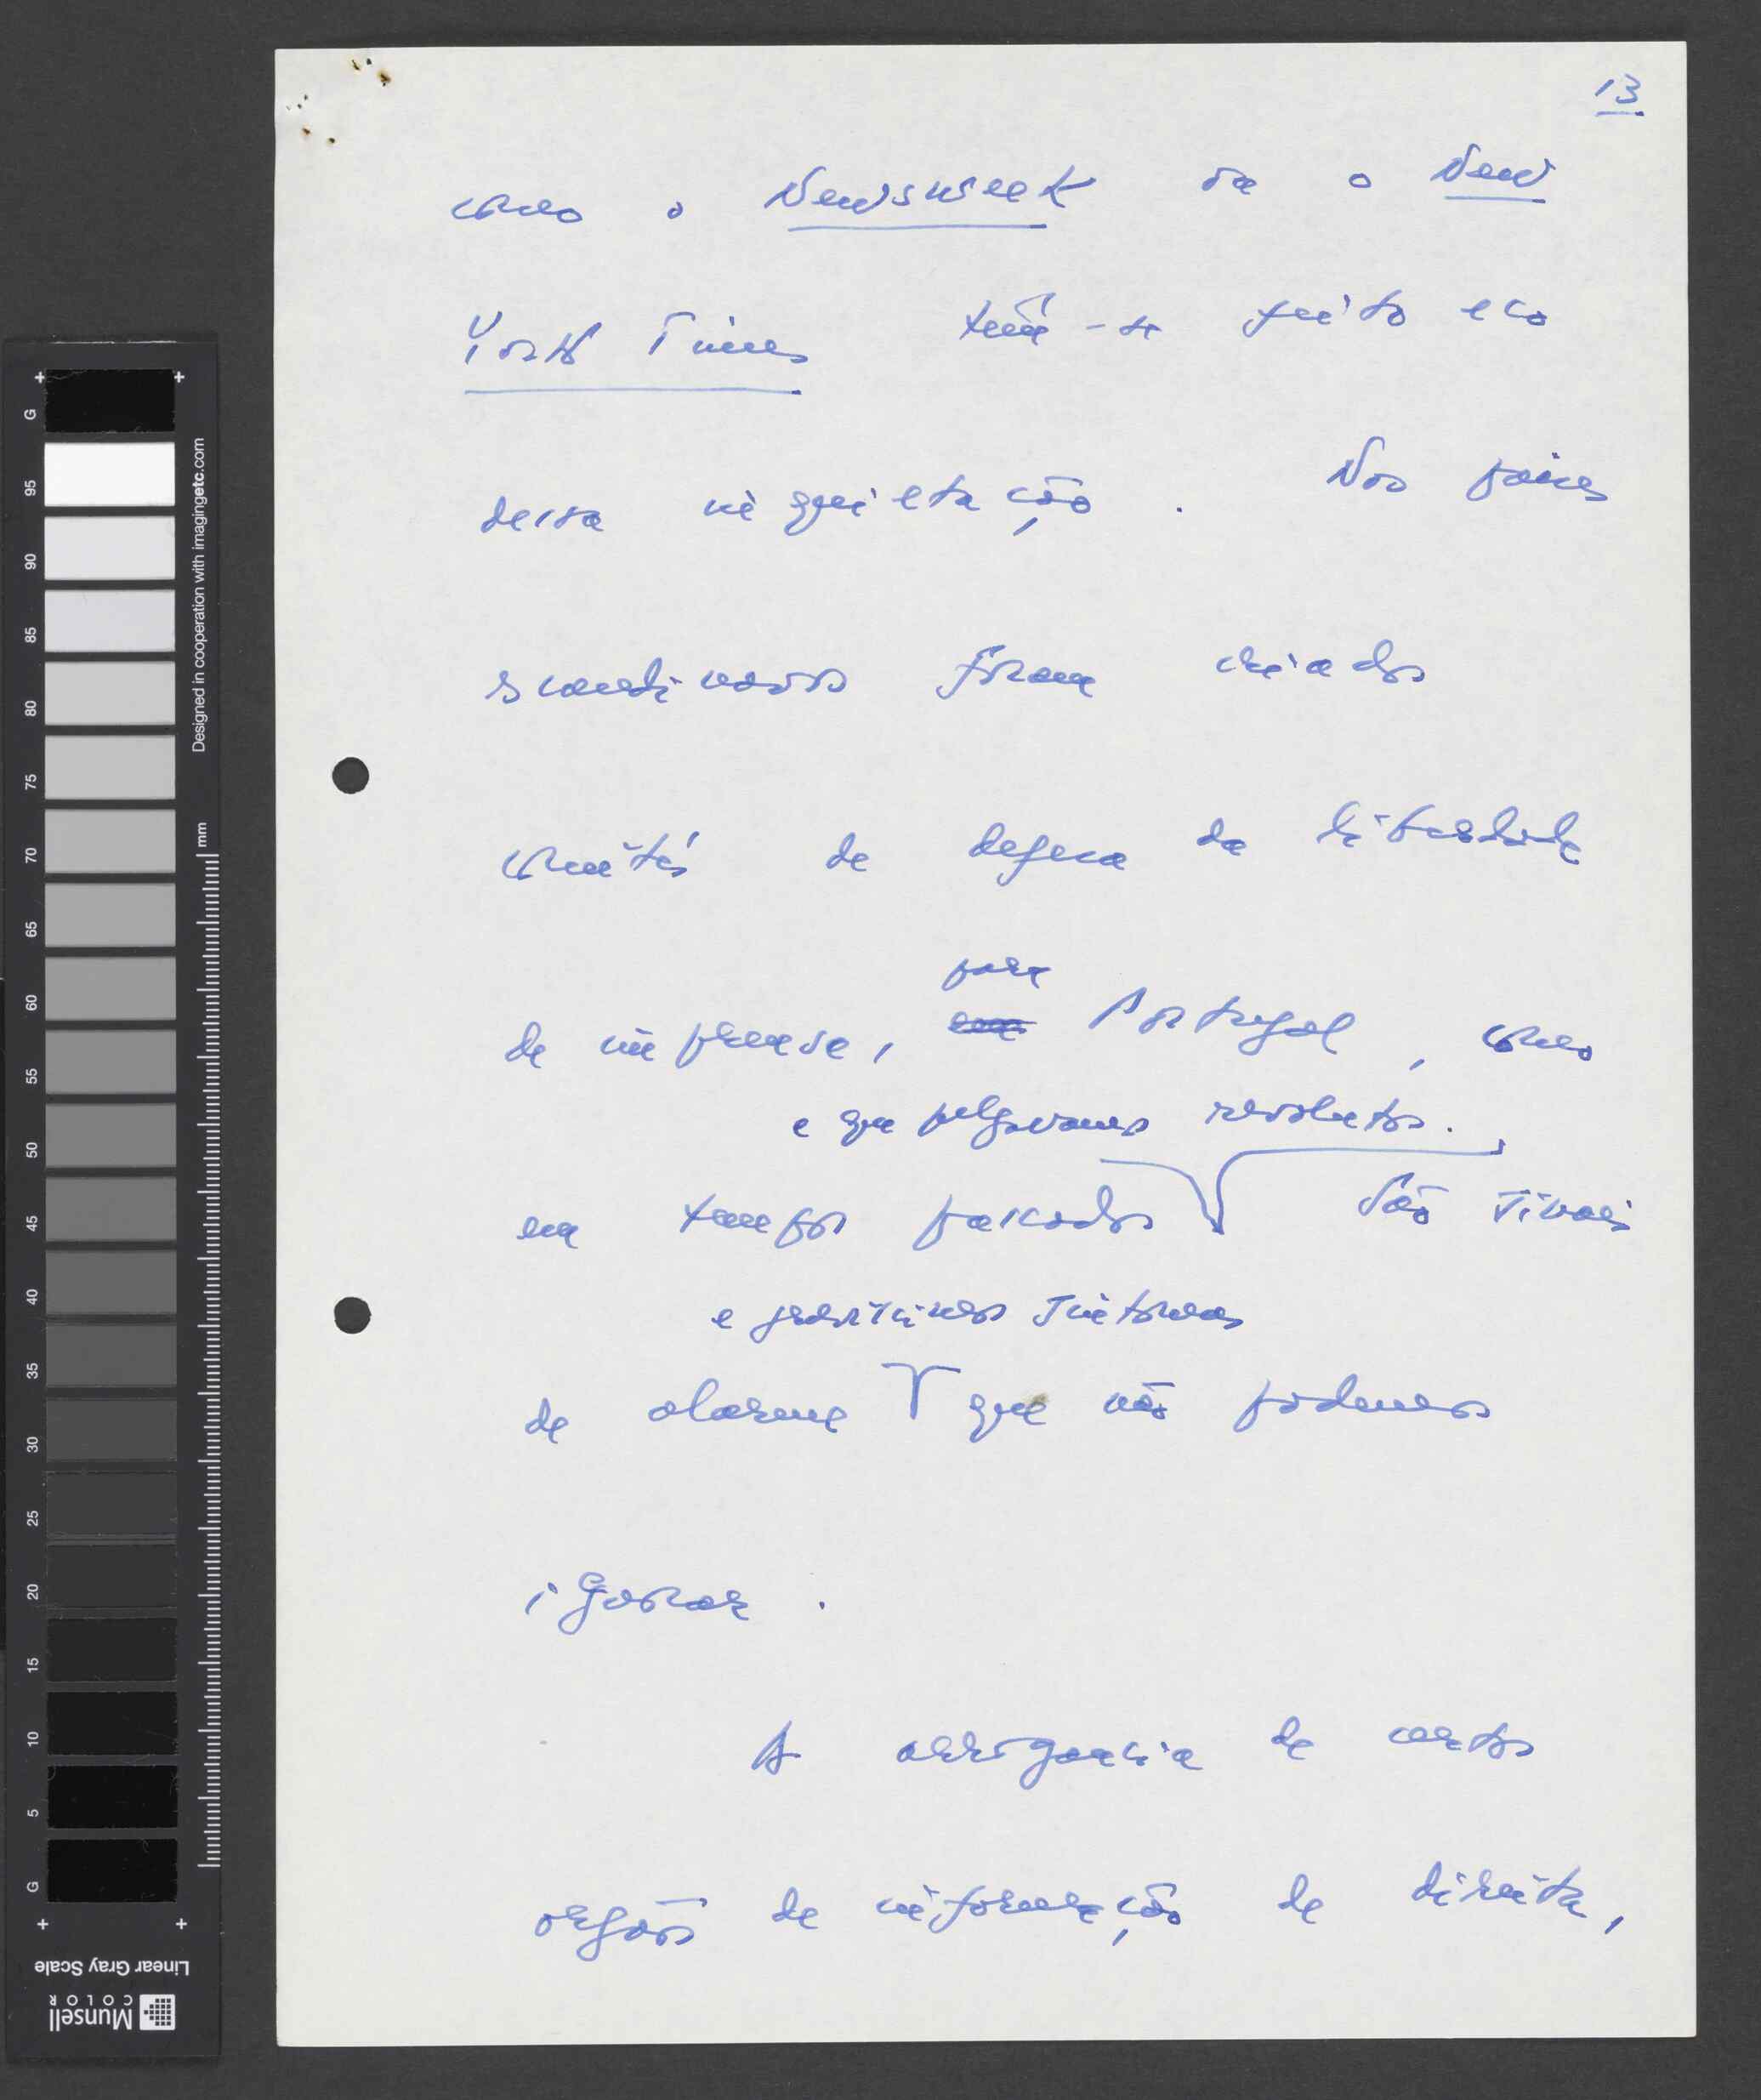 13
como o Newsweek ou o New
York Times têm-se feito eco
dessa inquietação. Nos países
scandinavos foram criados
comités de defesa da liberdade
para
de imprensa, em Portugal, como
e que julgávamos revolutos.
em tempos passados São sinais
e gravíssimos sintomas
de alarme que não podemos
ignorar.
A arrogância de certos
orgãos de informação de direita,
G
95
90
85
80
75
70
65
60
55
50
45
40
35
30
25
20
15
10
5
G
Designed in cooperation with imagingetc.com
mm
Linear Gray Scale
Munsell
COLOR